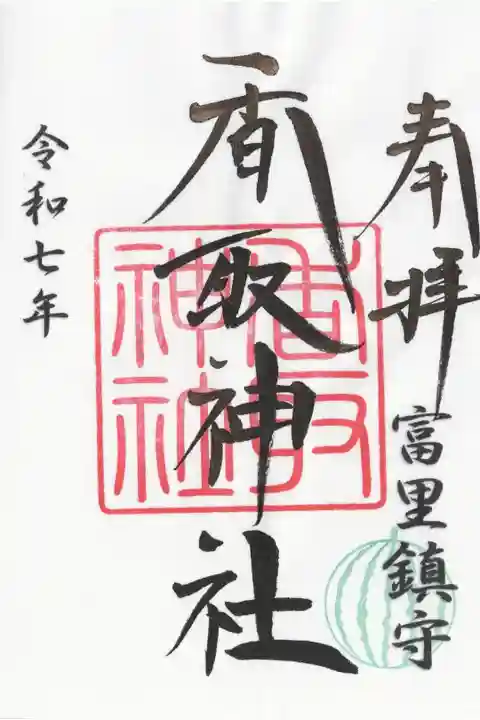 奉拝
富里鎮守
香取神社
香取神社
令和七年